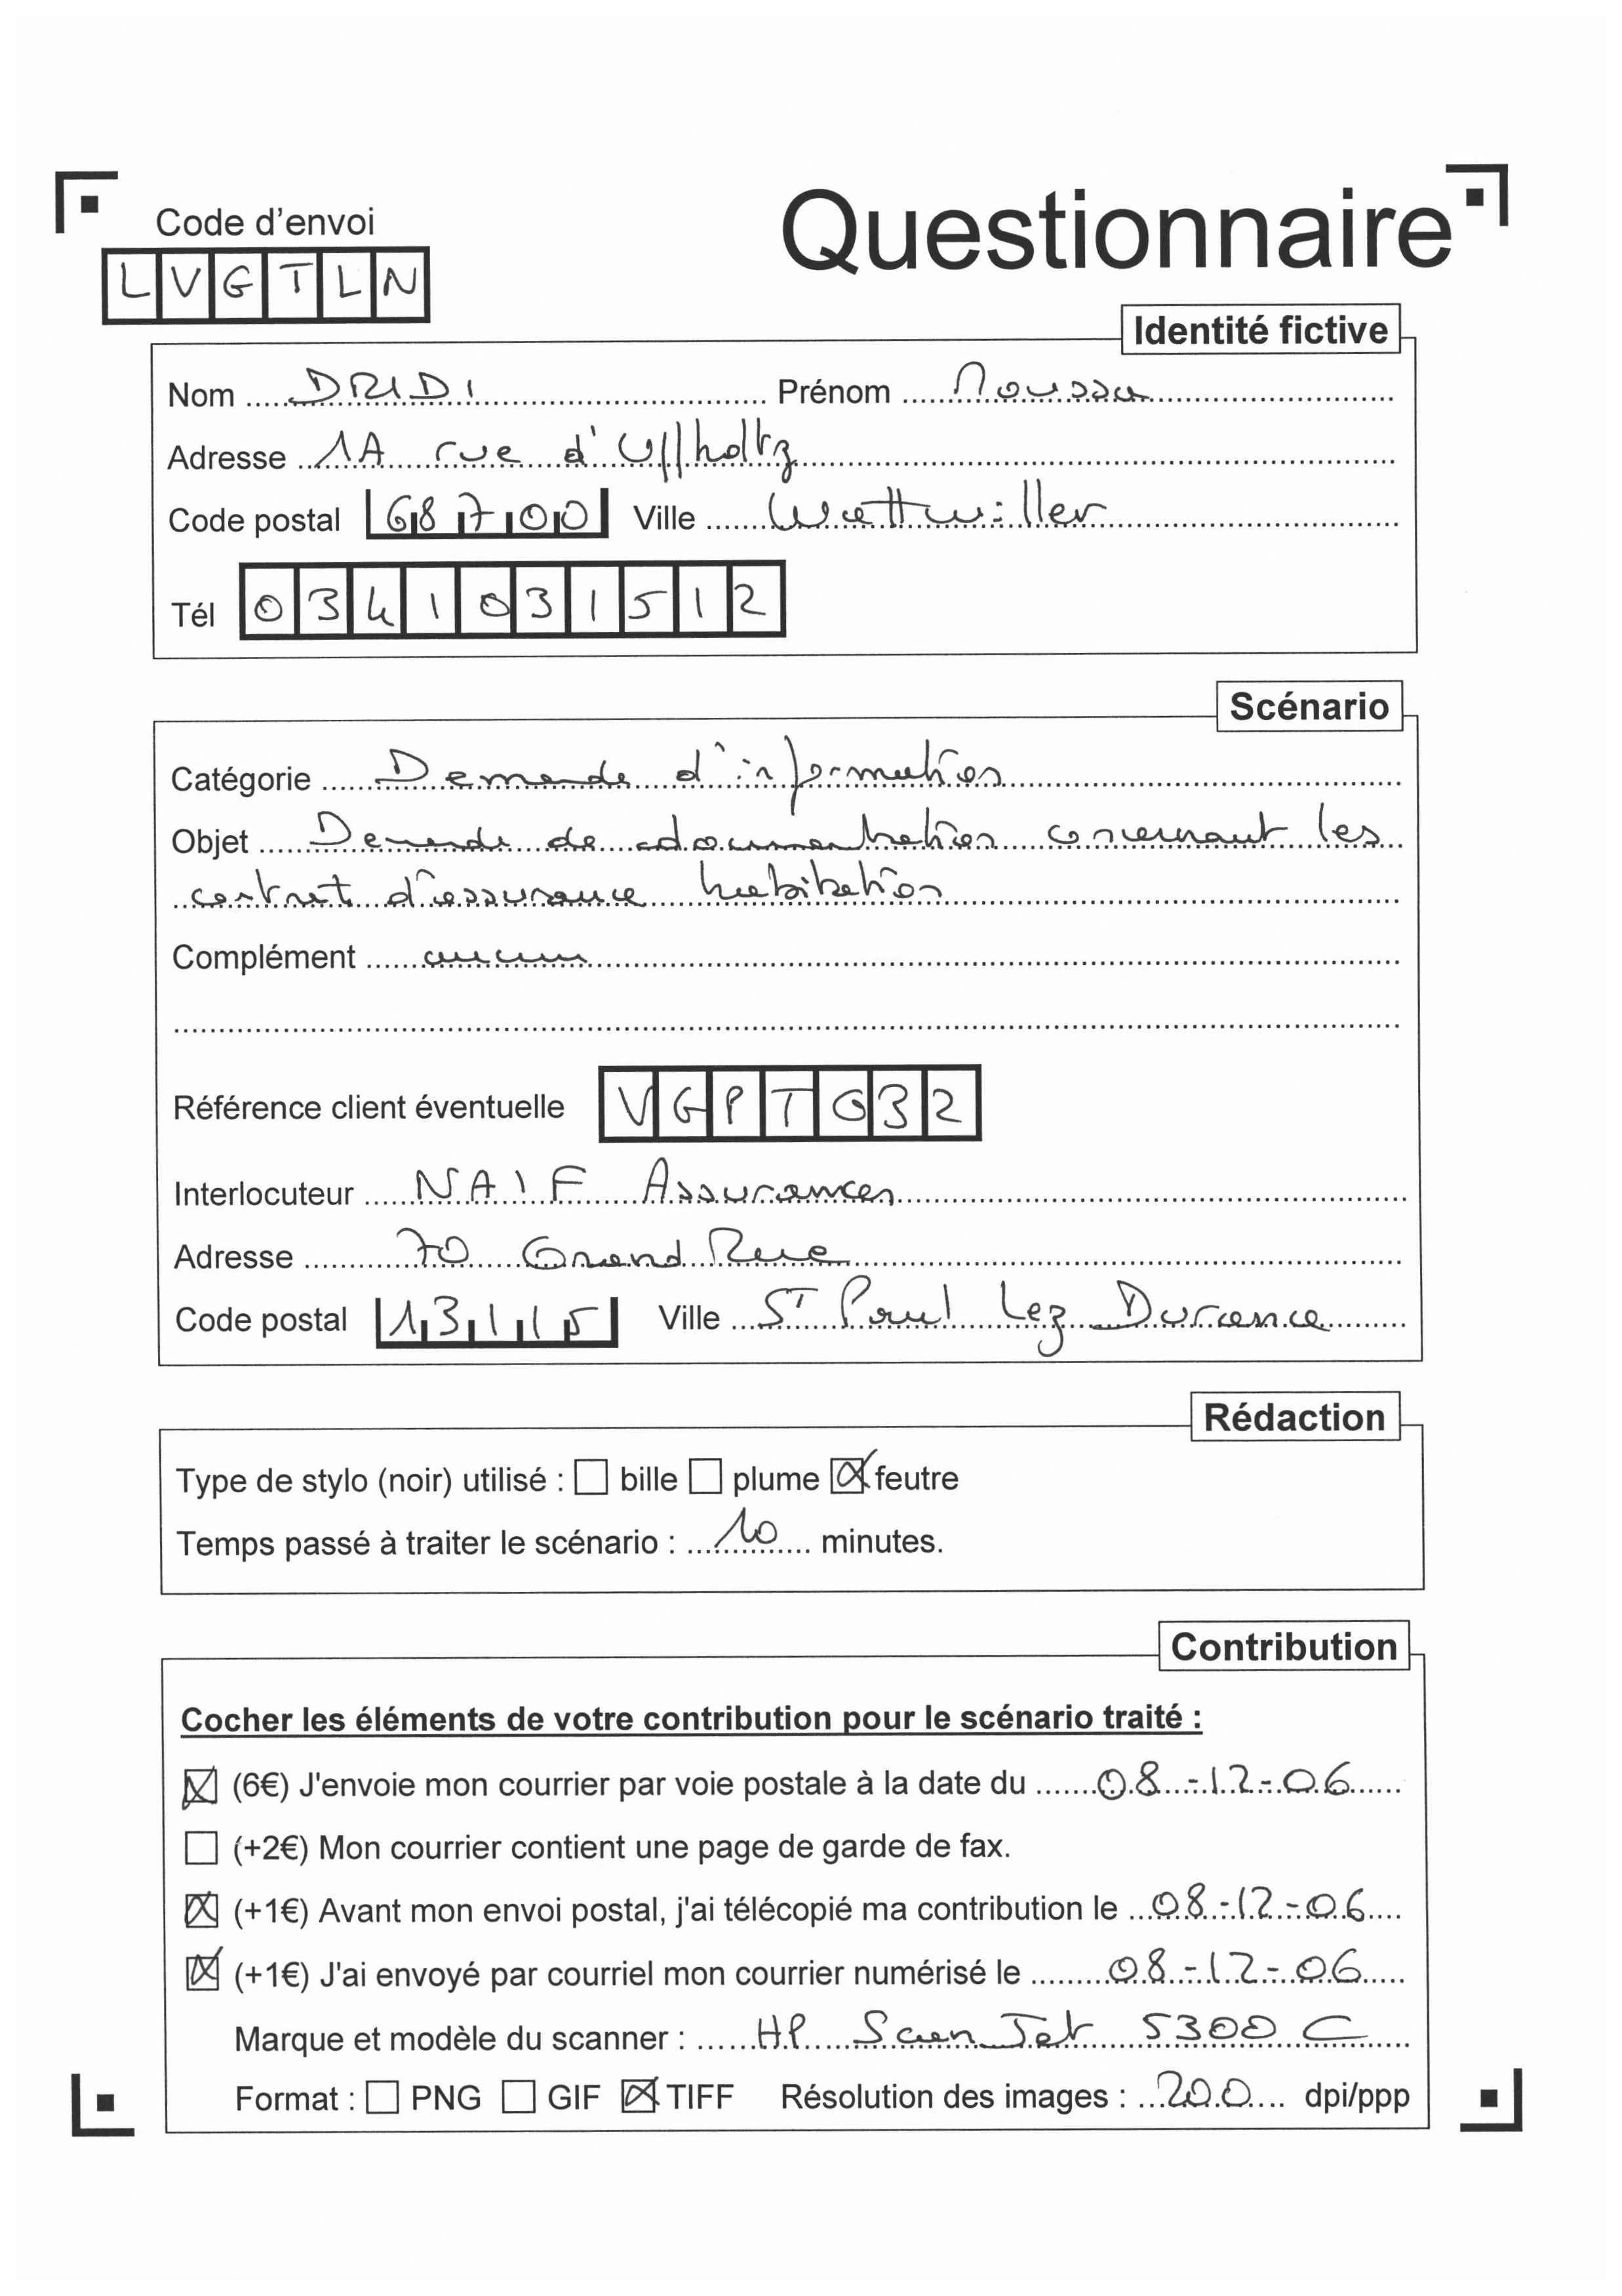 Code d'envoi
Questionnaire
LVGTLN
Identité fictive
Nom DRIDI Prénom Moussa
Adresse 1A rue d'Uffholtz
Code postal 68700 Ville Wattwiller
Tél 0341031512
Scénario
Catégorie Demande d'information
Objet Demande de documentation concernant les
contrat d'assurance habitation
Complément aucun
Référence client éventuelle VGPTG32
Interlocuteur NAIF Assurances
Adresse 70 Grand Rue
Code postal 13115 Ville ST Paul Lez Durance
Rédaction
Type de stylo (noir) utilisé : ☐ bille ☐ plume ☒ feutre
Temps passé à traiter le scénario : 10 minutes.
Contribution
Cocher les éléments de votre contribution pour le scénario traité :
☒ (6€) J'envoie mon courrier par voie postale à la date du 08-12-06
☐ (+2€) Mon courrier contient une page de garde de fax.
☒ (+1€) Avant mon envoi postal, j'ai télécopié ma contribution le 08-12-06
☒ (+1€) J'ai envoyé par courriel mon courrier numérisé le 08-12-06
Marque et modèle du scanner : HP ScanJet 5300 C
Format : ☐ PNG ☐ GIF ☒ TIFF Résolution des images : 200 dpi/ppp